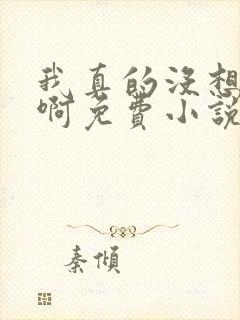 我真的没想
啊免费小说
秦倾